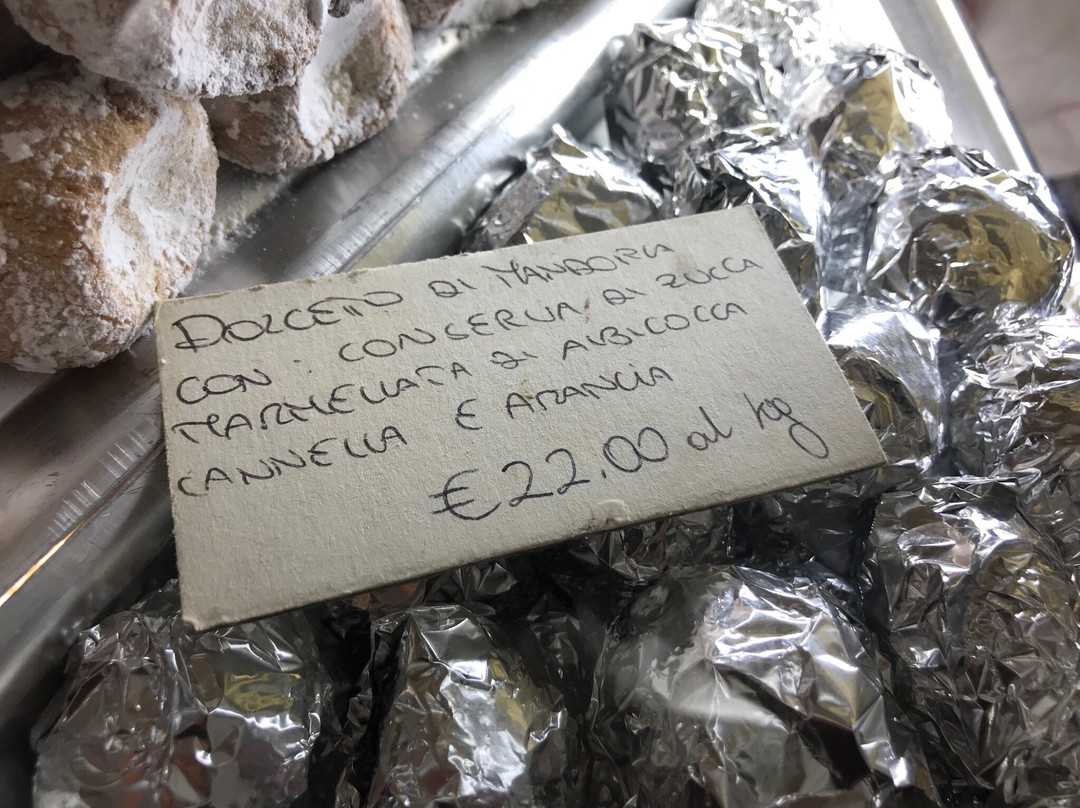 DOLCETTO DI MANDORLA
CON: CONSERVA DI ZUCCA
MARMELLATA DI ALBICOCCA
CANNELLA E ARANCIA
€22,00 al kg